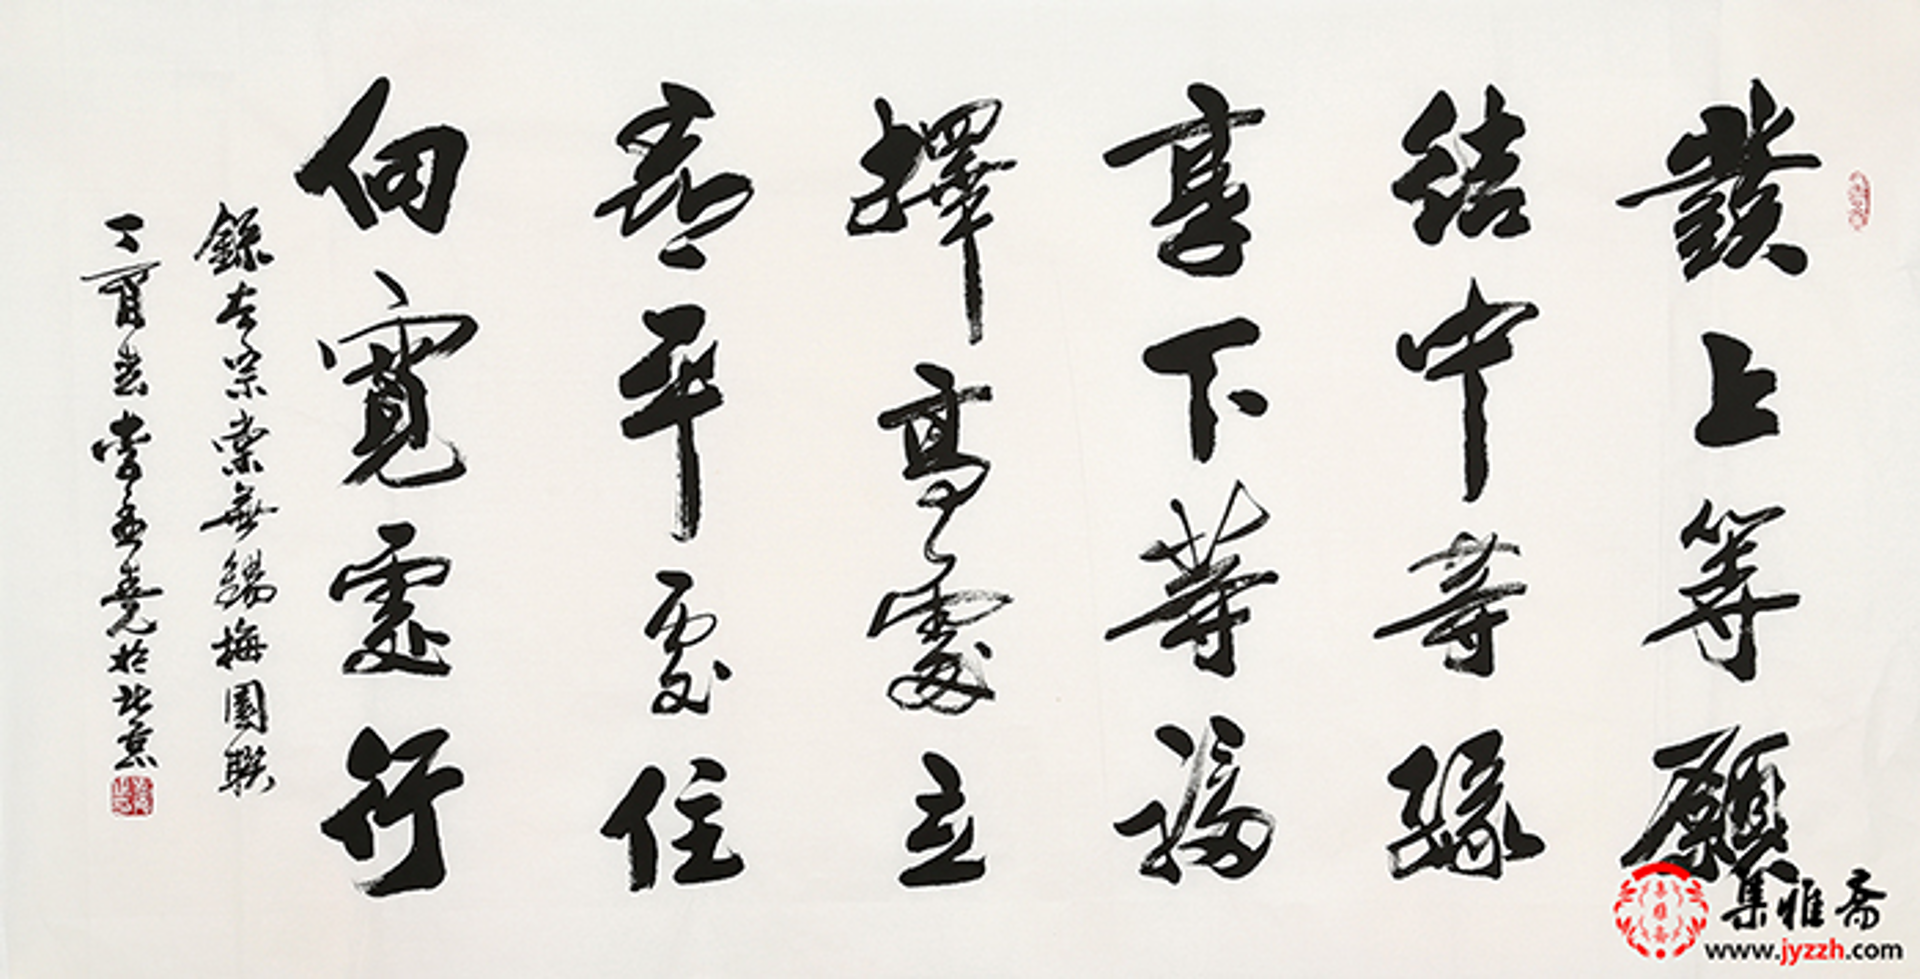 發上等願
結中等緣
享下等福
擇高處立
尋平處住
向寬處行
錄左宗棠無錫梅園聯
丁酉李孟堯於北京
集雅斋
www.jyzzh.com